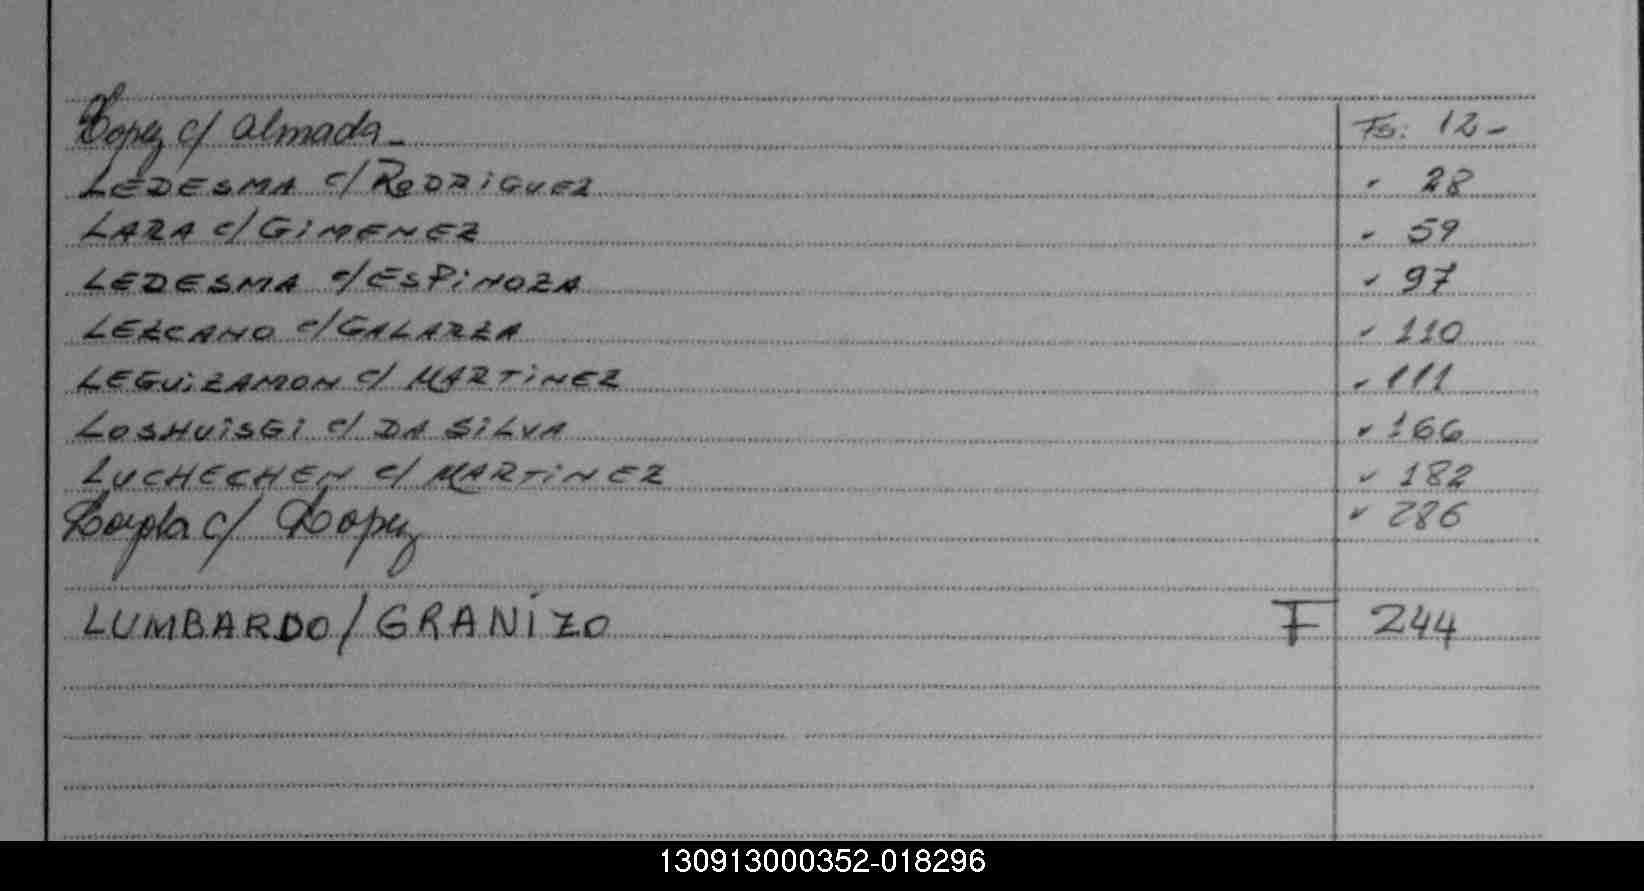 Lopez c/ Almada - Fs: 12-
LEDESMA c/ RODRIGUEZ " 28
LARA c/ GIMENEZ " 59
LEDESMA c/ ESPINOZA " 97
LEZCANO c/ GALARZA " 110
LEGUIZAMON c/ MARTINEZ " 111
LOSHUISGI c/ DA SILVA " 166
LUCHECHEN c/ MARTINEZ " 182
c/ Lopez " 286
LUMBARDO / GRANIZO F 244
130913000352-018296